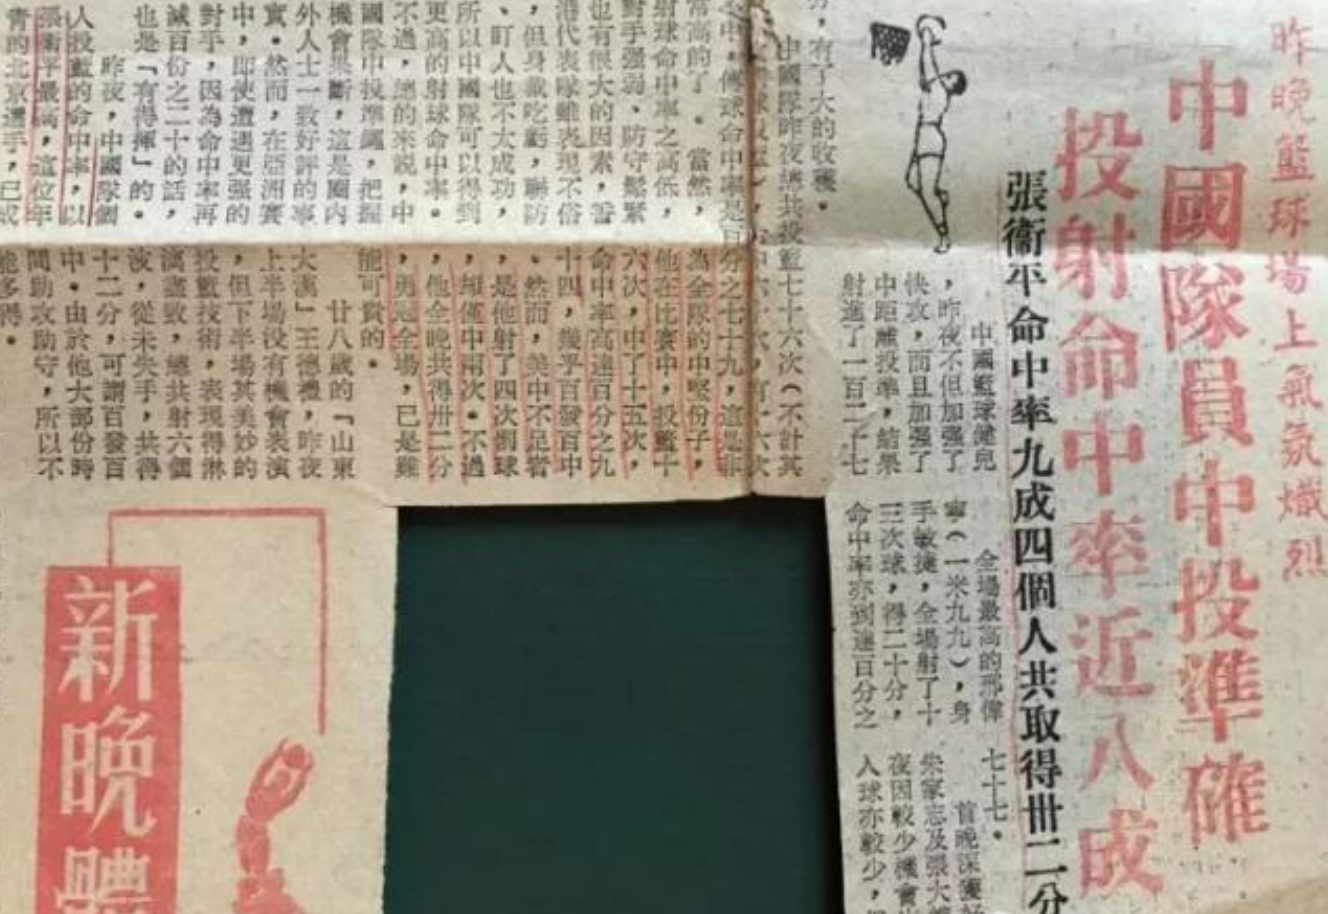 昨晚籃球場上氣氛熾烈
中國隊員中投準確
投射命中率近八成
張衞平命中率九成四個人共取得卅二分
中國籃球健兒
，昨夜不但加强了
快攻，而且加强了
中距離投準，結果
射進了一百二十七
分，有了大的收穫。
中國隊昨夜總共投籃七十六次（不計其
六十六次，有十六次
之中，傳球命中率是百分之七十九，這是非
常高的了。當然，
射球命中率之高低，
對手强弱、防守鬆緊
也有很大的因素，香
港代表隊雖表現不俗
，但身裁吃虧，聯防
、盯人也不太成功，
所以中國隊可以得到
更高的射球命中率。
不過，總的來説，中
國隊中投準繩，把握
機會果斷，這是圈内
外人士一致好評的事
實。然而，在亞洲賽
中，即使遭遇更强的
對手，因為命中率再
減百份之二十的話，
也是「有得揮」的。
昨夜，中國隊個
人投籃的命中率，以
張衞平最高，這位年
青的北京選手，已成
為全隊的中堅份子，
他在比賽中，投籃十
六次，中了十五次，
命中率高達百分之九
十四，幾乎百發百中
。然而，美中不足者
，是他射了四次罰球
，却僅中兩次。不過
，他全晚共得卅二分
，勇冠全場，已是難
能可貴的。
廿八歲的「山東
大漢」王德禮，昨夜
上半場沒有機會表演
，但下半場其美妙的
投籃技術，表現得淋
漓盡致，總共射六個
波，從未失手，共得
十二分，可謂百發百
中。由於他大部份時
間助攻助守，所以不
能多得。
全場最高的邢偉
寧（一米九九），身
手敏捷，全場射了十
三次球，得二十分，
命中率亦到達百分之
七十七。
首晚深獲好
朱家志及張大維
夜因較少機會出
入球亦較少，
新晚體